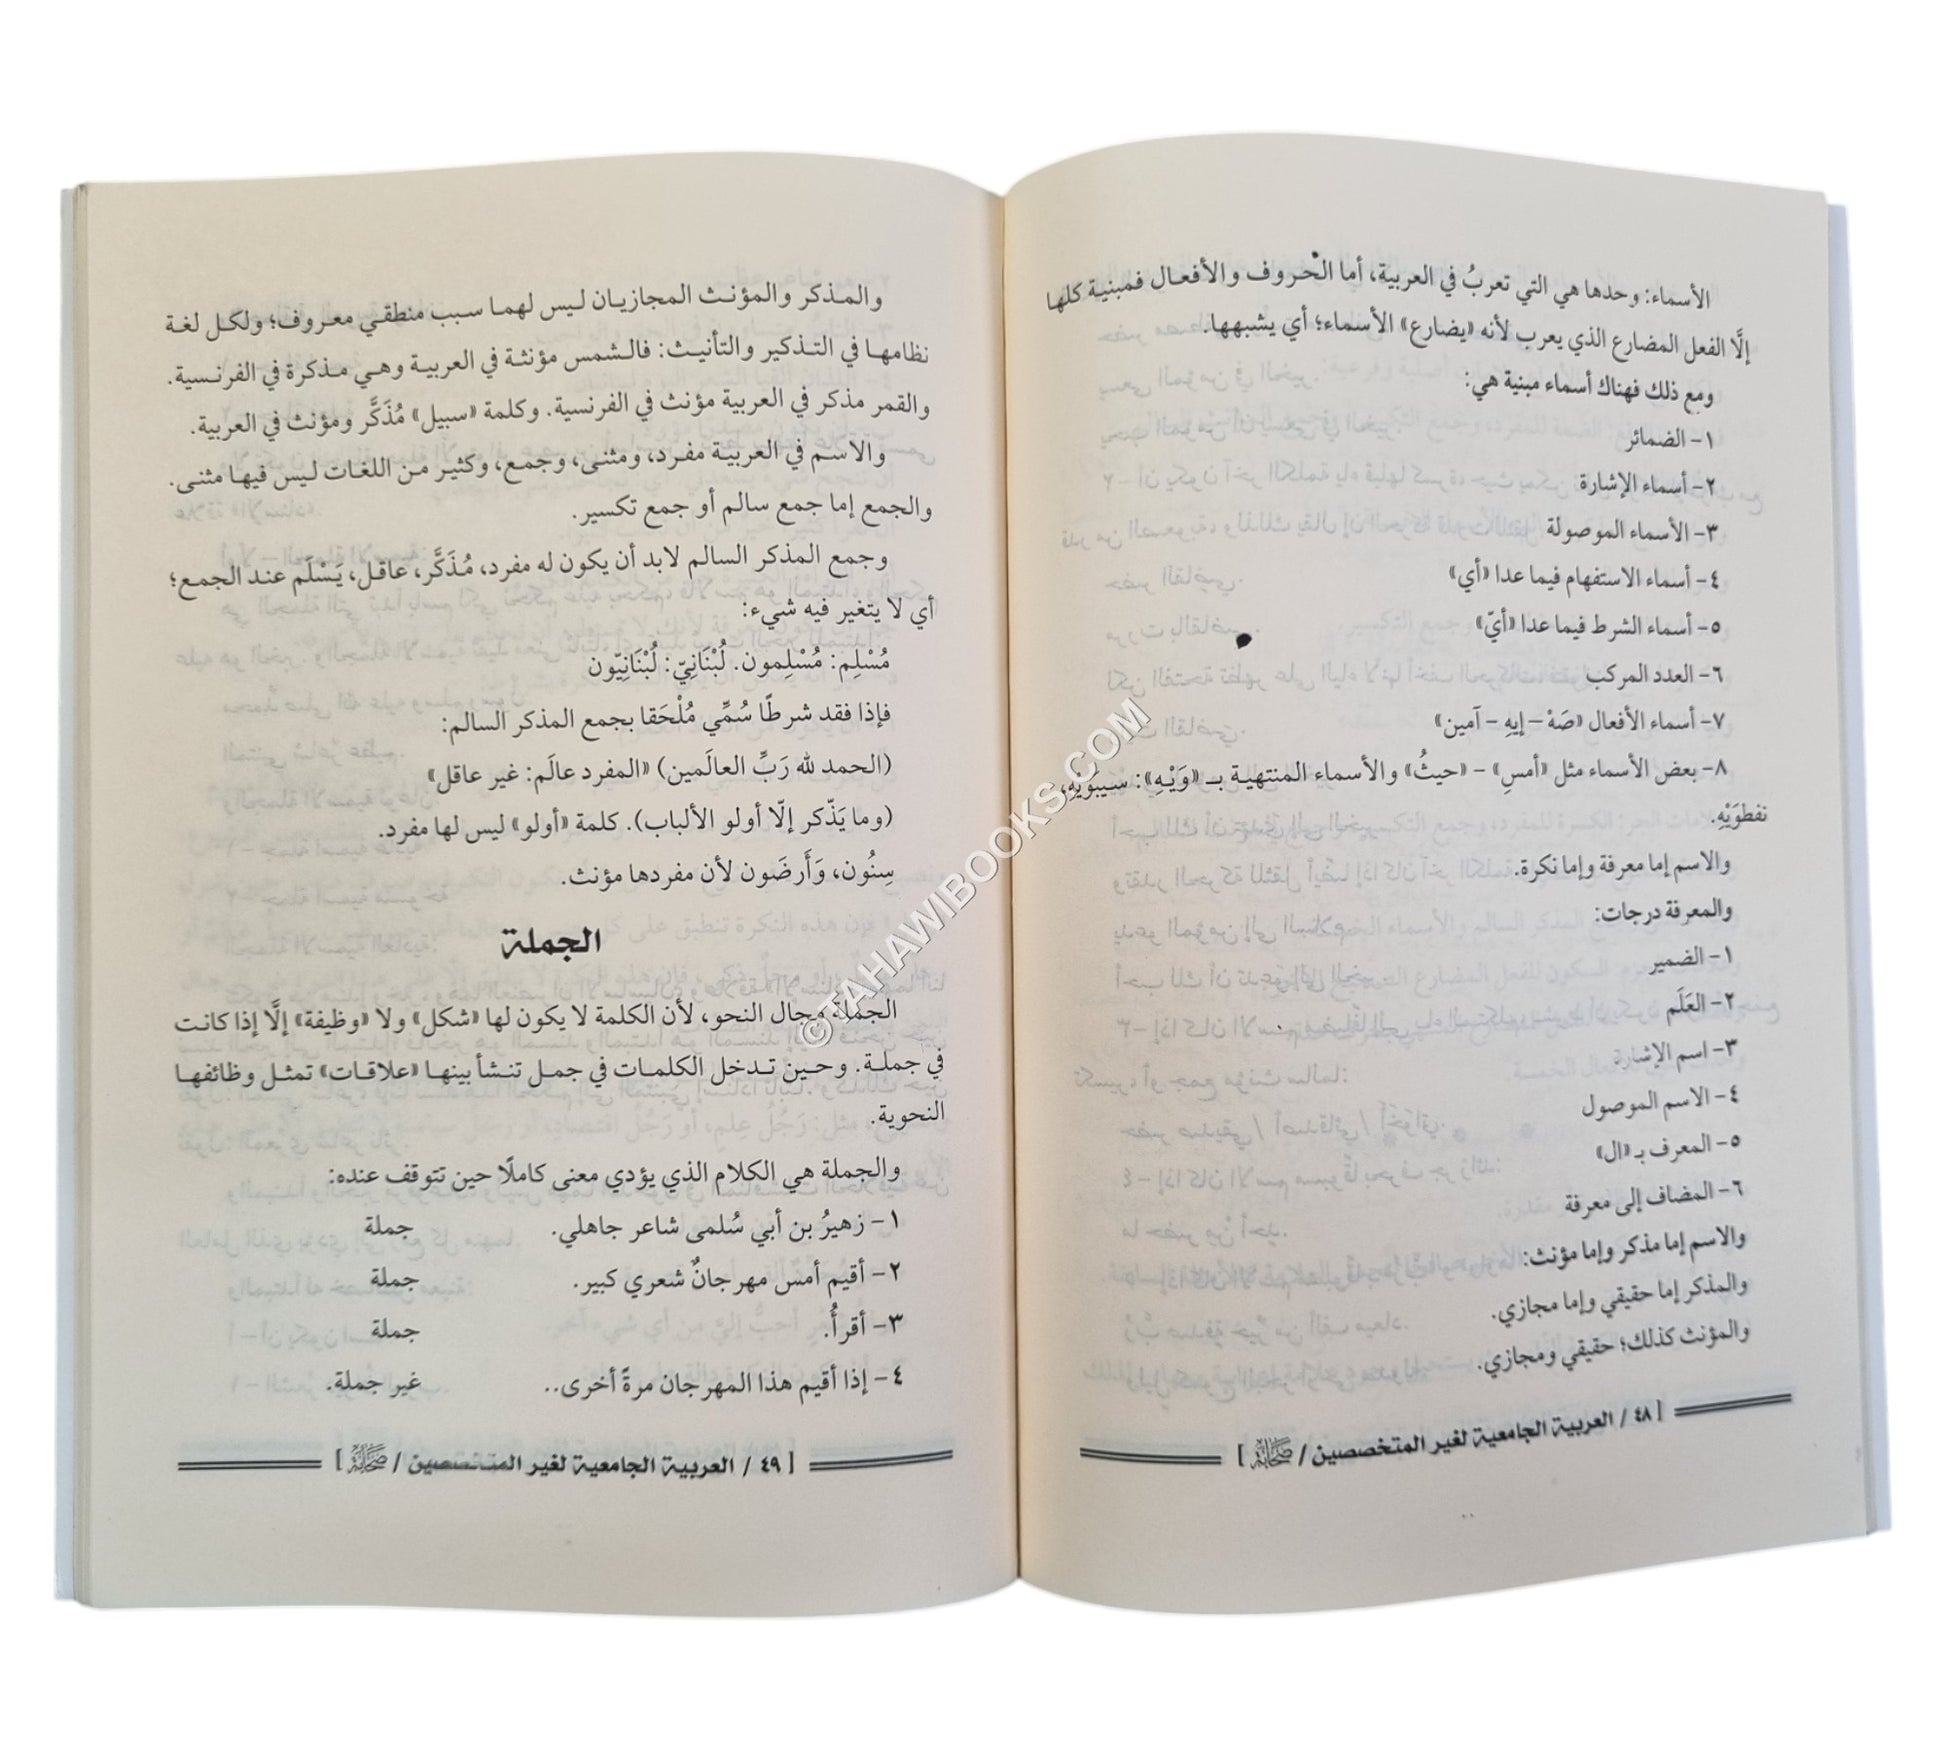 الأسماء: وحدها هي التي تعربُ في العربية، أما الحروف والأفعال فمبنية كلها
إلَّا الفعل المضارع الذي يعرب لأنه «يضارع» الأسماء؛ أي يشبهها.
ومع ذلك فهناك أسماء مبنية هي:
١- الضمائر
٢- أسماء الإشارة
٣- الأسماء الموصولة
٤- أسماء الاستفهام فيما عدا «أي»
٥- أسماء الشرط فيما عدا «أيّ»
٦- العدد المركب
٧- أسماء الأفعال «صَهْ - إيهِ - آمين»
٨- بعض الأسماء مثل «أمسِ» - «حيثُ» والأسماء المنتهية بـ «وَيْهِ»: سيبَويْهِ،
نفطَوَيْهِ.
والاسم إما معرفة وإما نكرة.
والمعرفة درجات:
١- الضمير
٢- العَلَم
٣- اسم الإشارة
٤- الاسم الموصول
٥- المعرف بـ «ال»
٦- المضاف إلى معرفة
والاسم إما مذكر وإما مؤنث:
والمذكر إما حقيقي وإما مجازي.
والمؤنث كذلك؛ حقيقي ومجازي.
[ ٤٨ / العربية الجامعية لغير المتخصصين / ]
والمذكر والمؤنث المجازيان ليس لهما سبب منطقي معروف؛ ولكل لغة
نظامها في التذكير والتأنيث: فالشمس مؤنثة في العربية وهي مذكرة في الفرنسية.
والقمر مذكر في العربية مؤنث في الفرنسية. وكلمة «سبيل» مُذَكَّر ومؤنث في العربية.
والاسم في العربية مفرد، ومثنى، وجمع، وكثير من اللغات ليس فيها مثنى.
والجمع إما جمع سالم أو جمع تكسير.
وجمع المذكر السالم لابد أن يكون له مفرد، مُذَكَّر، عاقل، يَسْلَم عند الجمع؛
أي لا يتغير فيه شيء:
مُسْلِم: مُسْلِمون. لُبْنَانِيّ: لُبْنَانِيّون
فإذا فقد شرطًا سُمِّي مُلْحَقا بجمع المذكر السالم:
(الحمد لله رَبِّ العالَمين) «المفرد عالَم: غير عاقل»
(وما يَذّكر إلّا أولو الألباب). كلمة «أولو» ليس لها مفرد.
سِنُون، وَأَرضَون لأن مفردها مؤنث.
الجملة
الجملة مجال النحو، لأن الكلمة لا يكون لها «شكل» ولا «وظيفة» إلَّا إذا كانت
في جملة. وحين تدخل الكلمات في جمل تنشأ بينها «علاقات» تمثل وظائفها
النحوية.
والجملة هي الكلام الذي يؤدي معنى كاملًا حين تتوقف عنده:
١- زهيرُ بن أبي سُلمى شاعر جاهلي. جملة
٢- أقيم أمس مهرجانٌ شعري كبير. جملة
٣- أقرأُ. جملة
٤- إذا أقيم هذا المهرجان مرةً أخرى.. غير جملة.
[ ٤٩ / العربية الجامعية لغير المتخصصين / ]
©TAHAWIBOOKS.COM